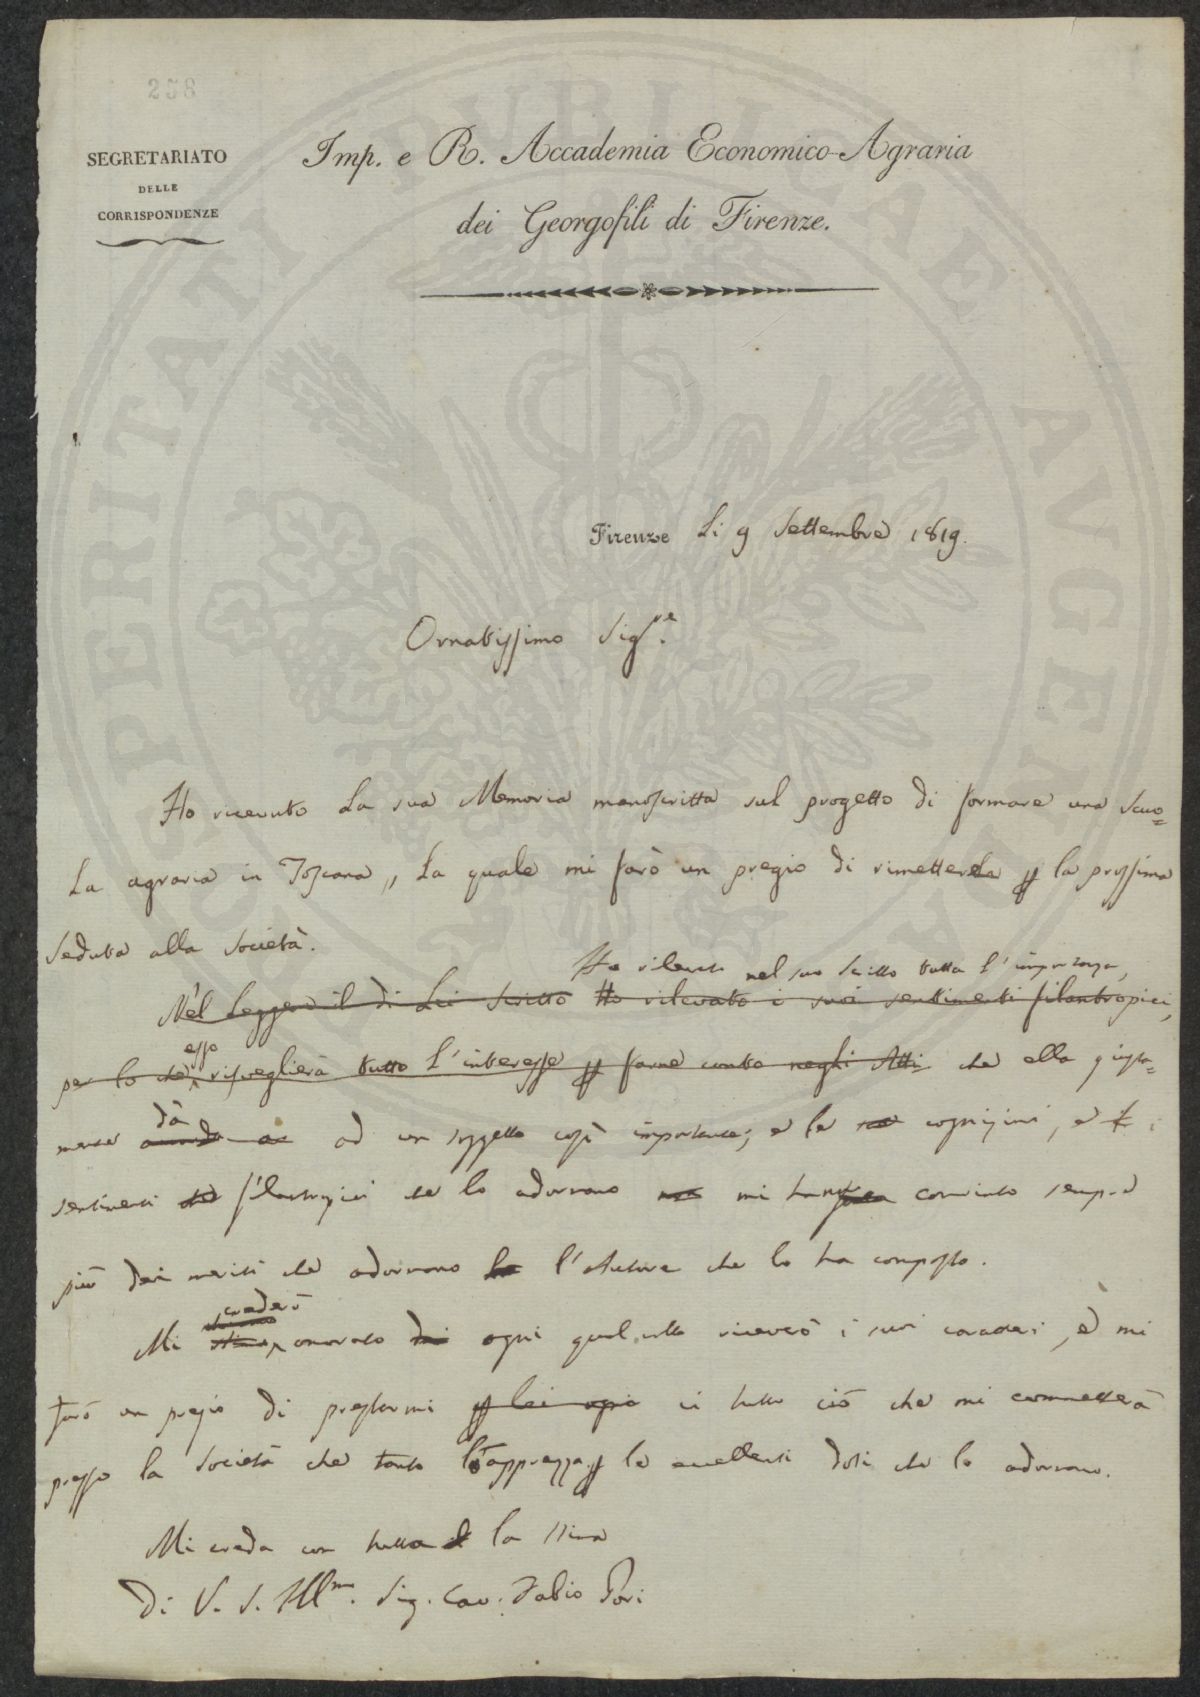 258
SEGRETARIATO
DELLE
CORRISPONDENZE
Imp. e R. Accademia Economico-Agraria
dei Georgofili di Firenze.
PERITATI PUBLICAE AUGENDAE
Firenze Li 9 Settembre 1819.
Ornatissimo Sigre.
Ho ricevuto La sua Memoria manoscritta sul progetto di formare una Scuo=
La agraria in Toscana,, La quale mi farò un pregio di rimetterla p la prossima
seduta alla Società.
Ho rilevato nel suo Scritto tutta l'importanza,
Nel leggere il di Lei Scritto Ho rilevato i suoi sentimenti filantropici,
esso
per lo che risveglierà tutto l'interesse p farne conto neghi Atti che ella giusta=
dà
mente ad un soggetto così importante; e le cognizioni, e i
sentimenti filantropici che lo adornano mi hanno convinto sempre
più dei meriti che adornano l'Autore che lo ha composto.
crederò
Mi onorato ogni qual volta riceverò i suoi caratteri, e mi
farò un pregio di prestarmi p Lei ogni in tutto ciò che mi commetterà
presso la Società che tanto l'apprezza p le eccellenti doti che lo adornano.
Mi creda con tutta la stima
Di V. S. Illma. Sig. Cav. Fabio